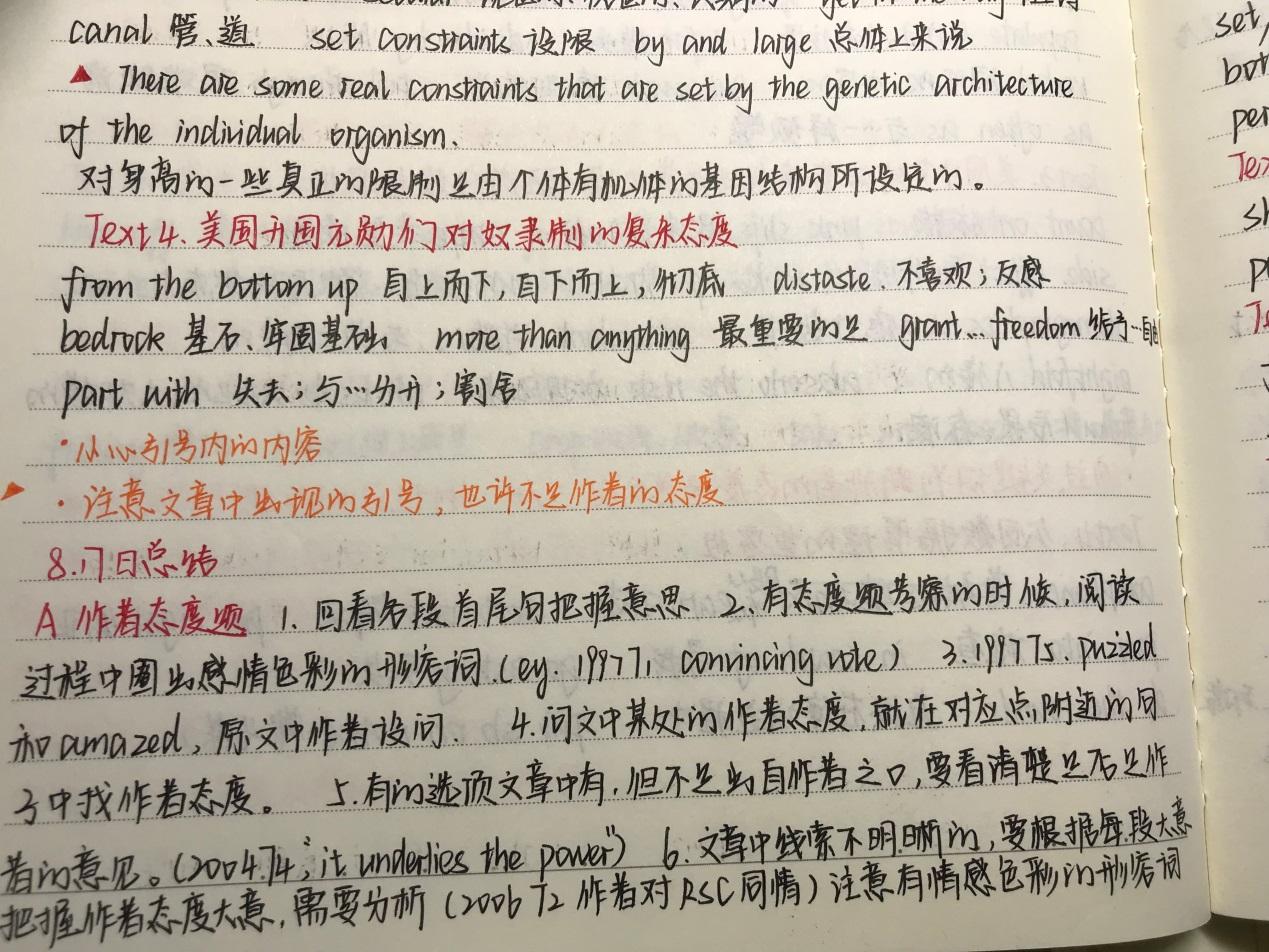 canal 管、道 set constraints 设限 by and large 总体上来说
▲ There are some real constraints that are set by the genetic architecture
of the individual organism.
对身高的一些真正的限制是由个体有机体的基因结构所设定的。
Text 4. 美国开国元勋们对奴隶制的复杂态度
from the bottom up 自上而下,自下而上,彻底 distaste. 不喜欢;反感
bedrock 基石、牢固基础 more than anything 最重要的是 grant... freedom 给予…自由
part with 失去;与…分开;割舍
·小心引号内的内容
·注意文章中出现的引号,也许不是作者的态度
8.17日总结
A 作者态度题 1. 回看各段首尾句把握意思 2. 有态度题考察的时候,阅读
过程中圈出感情色彩的形容词.(eg. 1997T1 convincing vote) 3. 1997T5. puzzled
和 amazed, 原文中作者设问. 4.问文中某处的作者态度,就在对应点附近的句
子中找作者态度。 5.有的选项文章中有,但不是出自作者之口,要看清楚是否是作
者的意见。(2004.T4 "it underlies the power") 6. 文章中线索不明晰的,要根据每段大意
把握作者态度大意,需要分析 (2006 T2 作者对RSC同情) 注意有情感色彩的形容词
set,
Tex